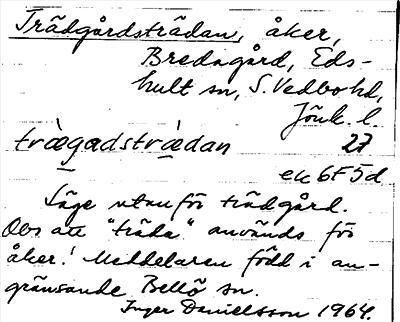 Trädgårdsträdan, åker,
Bredagård, Eds-
hult sn, S. Vedbo hd,
Jönk. l.
trägadsträdan 27
ek 6F5d
Läge utanför trädgård.
Obs att "träda" används för
åker! Meddelaren född i an-
gränsande Bellö sn.
Inger Danielsson 1964.